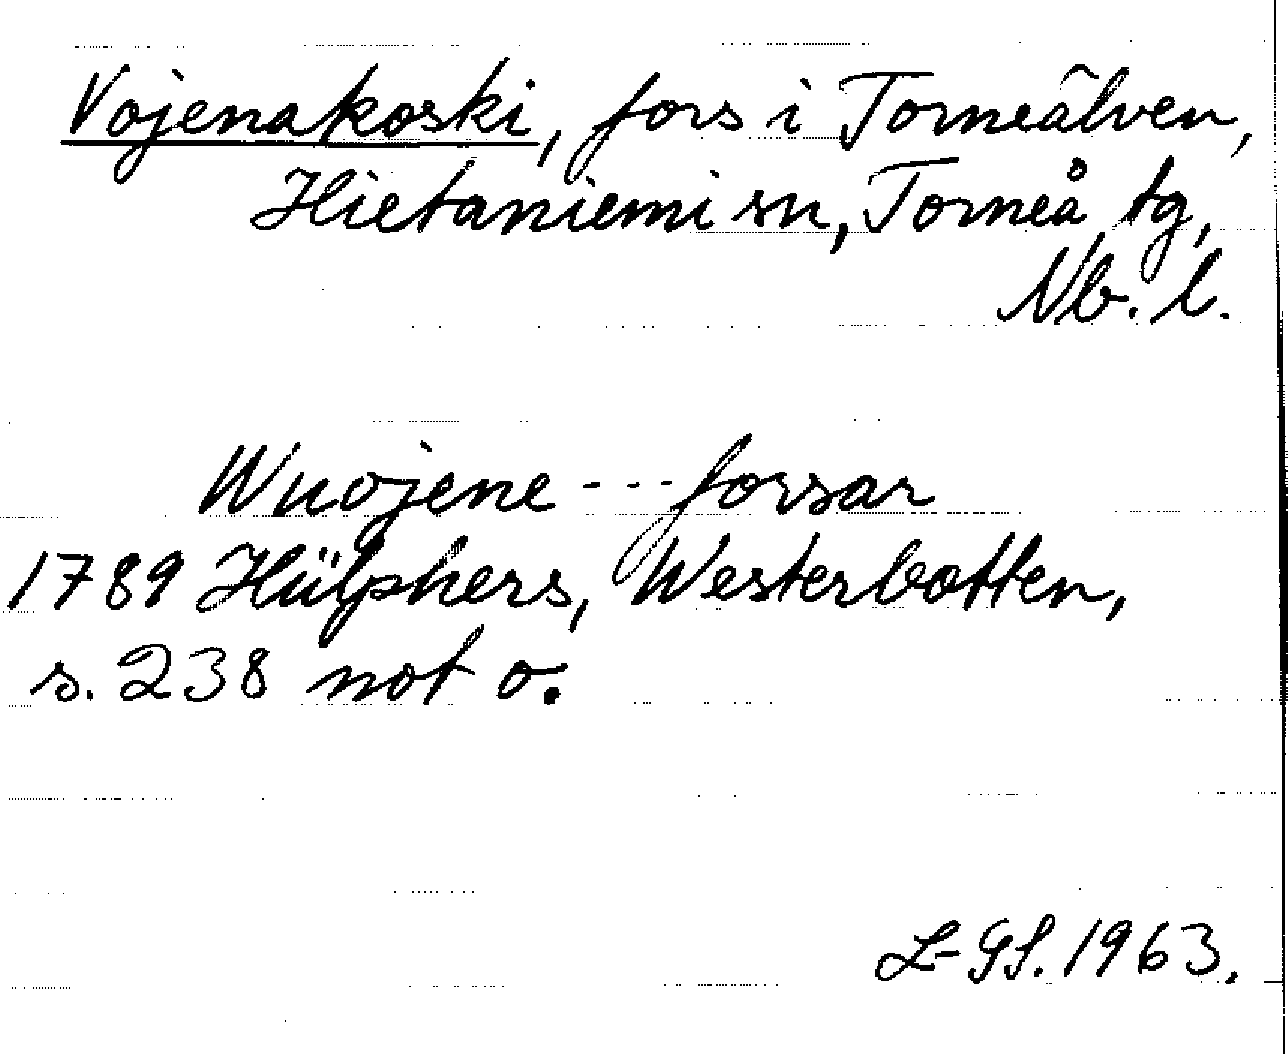 Vojenakoski, fors i Torneälven,
Hietaniemi sn, Torneå tg,
Nb. l.
Wuojene --- forsar
1789 Hülphers, Westerbotten,
s. 238 not o.
L-GS. 1963.